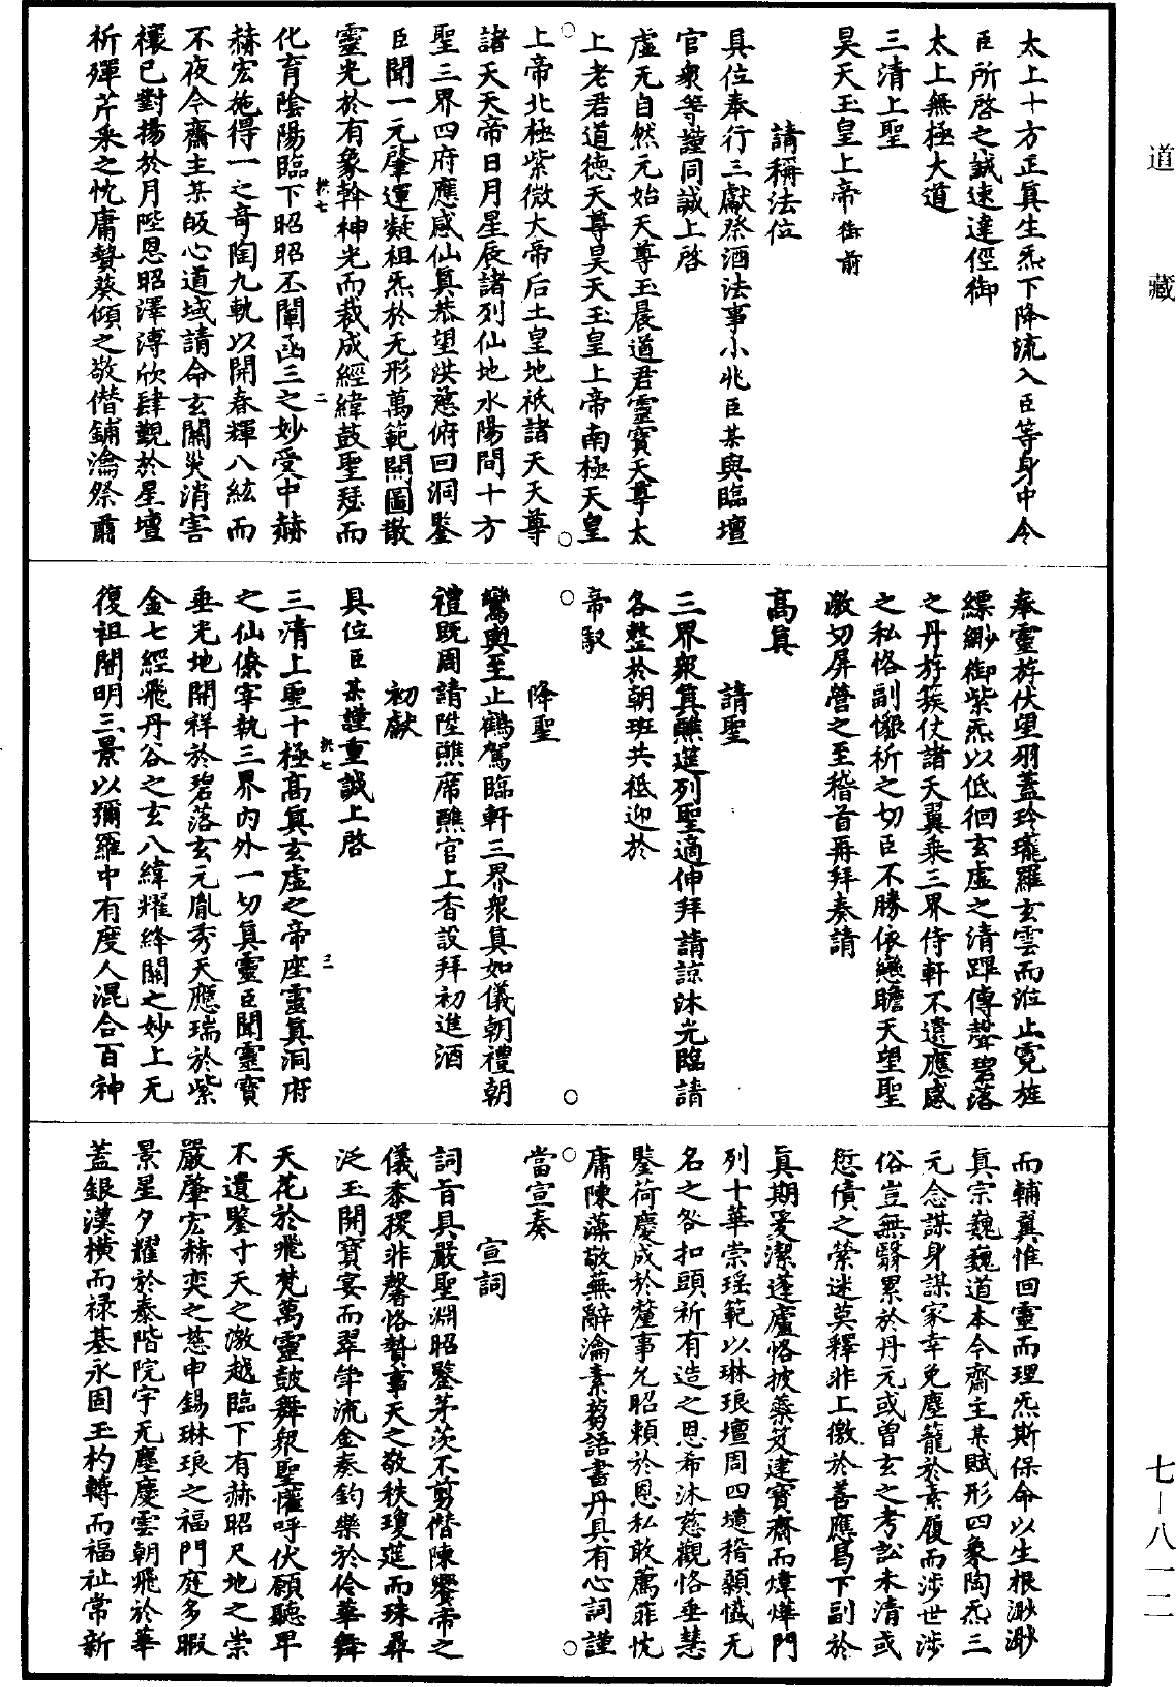 道藏
太上十方正真生炁下降流入臣等身中令
臣所啓之誠速達徑御
太上無極大道
三清上聖
昊天玉皇上帝御前
請稱法位
具位奉行三獻祭酒法事小兆臣某與臨壇
官衆等謹同誠上啓
虛无自然元始天尊玉晨道君靈寳天尊太
上老君道德天尊昊天玉皇上帝南極天皇
上帝北極紫微大帝后土皇地祇諸天天尊
諸天天帝日月星辰諸列仙地水陽間十方
聖三界四府應感仙真恭望洪慈俯回洞鑒
臣聞一元肇運凝祖炁於无形萬範開圖散
靈光於有象斡神光而裁成經緯鼓聖瑟而
化育陰陽臨下昭昭丕闡函三之妙受中赫
赫宏施得一之奇陶九軌以開春輝八紘而
不夜今齋主某皈心道域請命玄關災消害
禳已對揚於月陛恩昭澤溥欣肆覲於星壇
祈殫芹采之忱庸贄葵傾之敬偕鋪瀹祭肅
奉靈斿伏望羽蓋玲瓏羅玄雲而涖止霓旌
縹緲御紫炁以低徊玄虛之清蹕傳聲碧落
之丹斿簇仗諸天翼乘三界侍軒不遺應感
之私恪副懷祈之切臣不勝依戀瞻天望聖
激切屏營之至稽首再拜奏請
高真
請聖
三界衆真醮筵列聖適伸拜請諒沐光臨請
各整於朝班共祗迎於
帝馭
降聖
鸞輿至止鶴駕臨軒三界衆真如儀朝禮朝
禮既周請陞醮席醮官上香設拜初進酒
初獻
具位臣某謹重誠上啓
三清上聖十極高真玄虛之帝座靈真洞府
之仙僚宰執三界內外一切真靈臣聞靈寳
垂光地開祥於碧落玄元胤秀天應瑞於紫
金七經飛丹谷之玄八緯耀絳關之妙上无
復祖開明三景以彌羅中有度人混合百神
而輔翼惟回靈而理炁斯保命以生根渺渺
真宗巍巍道本今齋主某賦形四象陶炁三
元念謀身謀家幸免塵籠於素履而涉世涉
俗豈無翳累於丹元或曽玄之考訟未清或
愆債之縈迷莫釋非上徼於善應曷下副於
真期爰潔蓬廬恪披蘂笈建寳齋而煒燁門
列十華崇瑶範以琳琅壇周四壝稽顙懺无
名之咎扣頭祈有造之恩希沐慈觀恪垂慧
鑒荷慶成於釐事允昭賴於恩私敢薦菲忱
庸陳藻敬蕪辭瀹素蒭語書丹具有心詞謹
當宣奏
宣詞
詞旨具嚴聖淵昭鑒茅茨不剪偕陳饗帝之
儀黍稷非馨恪贄事天之敬秩瓊筵而珠彛
泛玉開寳宴而翠斝流金奏鈞樂於伶華舞
天花於飛梵萬靈鼓舞衆聖懽呼伏願聽卑
不遺鑒寸天之激越臨下有赫昭尺地之崇
嚴肇宏赫奕之慈申錫琳琅之福門庭多暇
景星夕耀於泰階院宇无塵慶雲朝飛於華
蓋銀漢橫而禄基永固玉杓轉而福祉常新
七－八一二